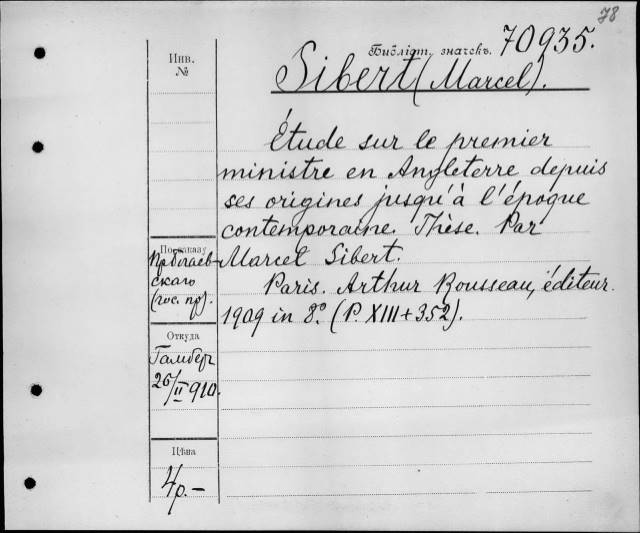 78
Библіот. значекъ. 70935.
Инв.
№
Sibert (Marcel).
Étude sur le premier
ministre en Angleterre depuis
ses origines jusqu'à l'époque
contemporaine. Thèse. Par
Marcel Sibert.
Paris. Arthur Rousseau, éditeur.
1909 in 8.° (P. XIII+352).
По заказу
скаго
(гос. пр).
Откуда
Гамбер
26/II 910.
Цѣна
4р.-